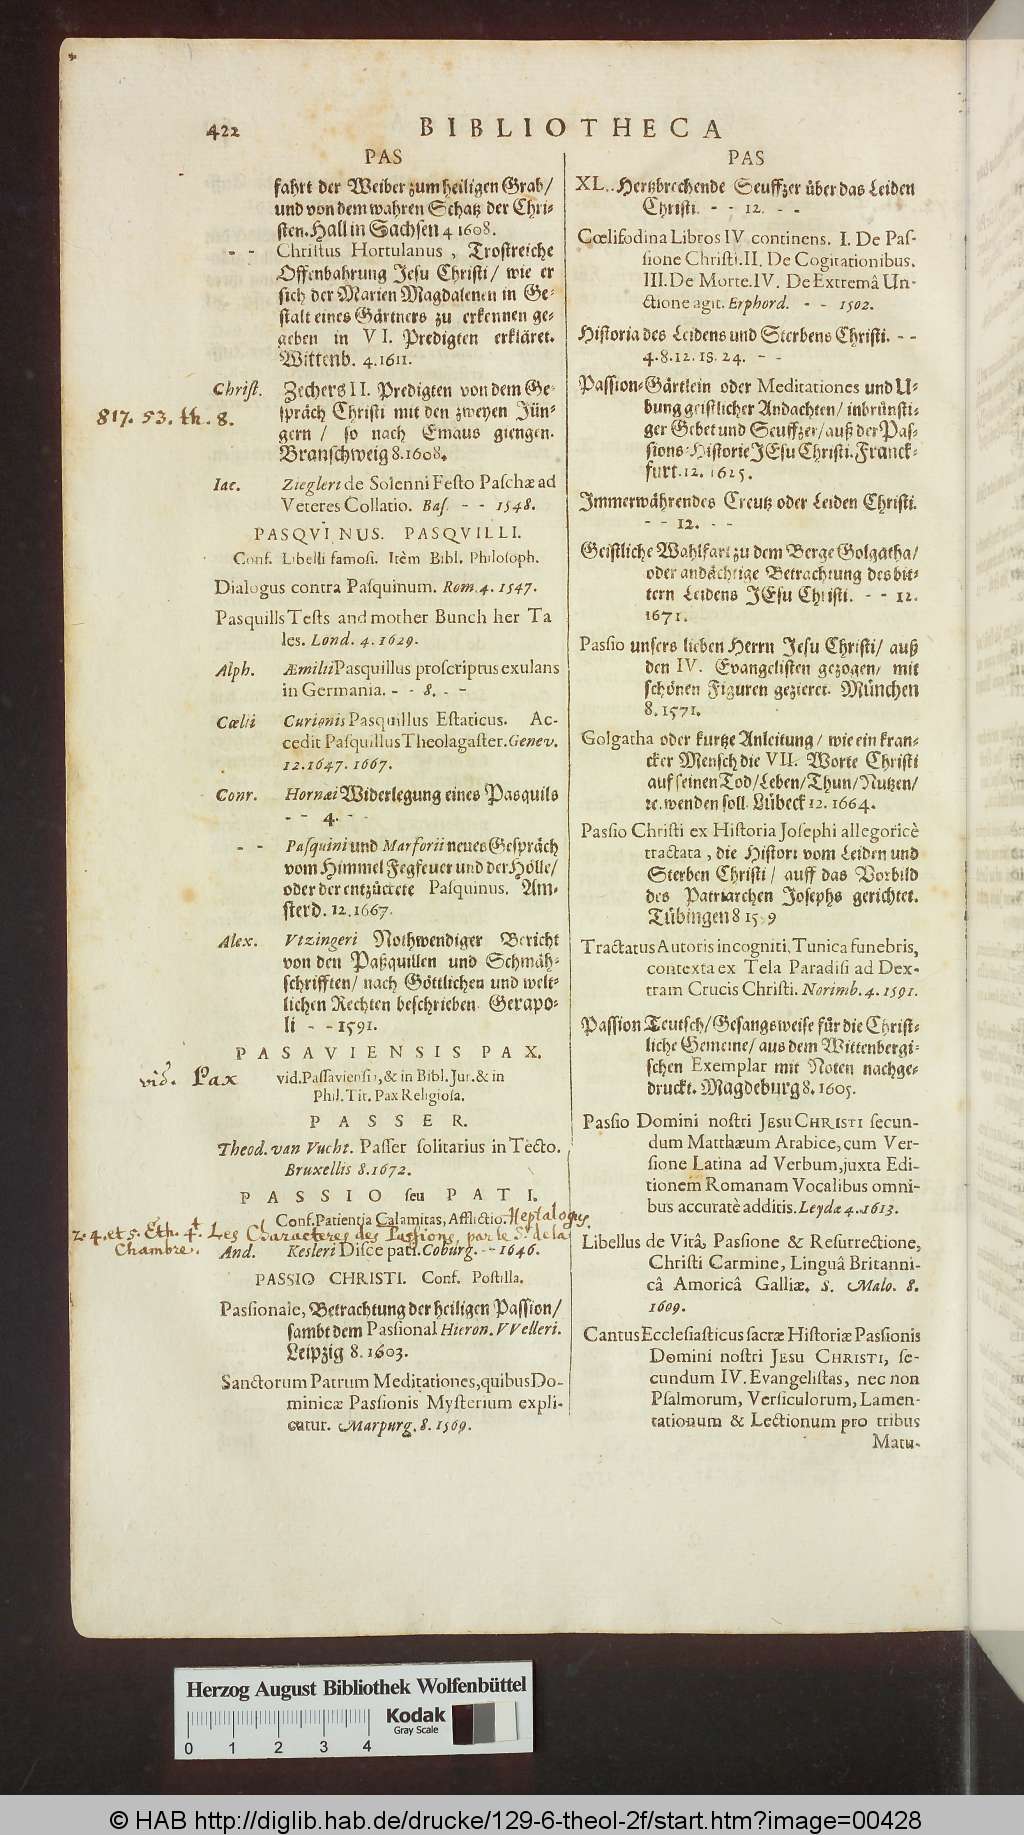 422
BIBLIOTHECA
PAS
fahrt der Weiber zum heiligen Grab/
und von dem wahren Schatz der Chri-
sten. Hall in Sachsen 4 1608.
- - Christus Hortulanus, Trostreiche
Offenbahrung Jesu Christi/ wie er
sich der Marien Magdalenen in Ge-
stalt eines Gärtners zu erkennen ge-
geben in VI. Predigten erkläret.
Wittenb. 4. 1611.
Christ. Zechers II. Predigten von dem Ge-
817. 53. th. 8.
spräch Christi mit den zweyen Jün-
gern / so nach Emaus giengen.
Branschweig 8. 1608.
Iac. Ziegleri de Solenni Festo Paschæ ad
Veteres Collatio. Bas. - - 1548.
PASQVINUS. PASQVILLI.
Conf. Libelli famosi. Itèm Bibl. Philosoph.
Dialogus contra Pasquinum. Rom. 4. 1547.
Pasquills Tests and mother Bunch her Ta
les. Lond. 4. 1629.
Alph. Æmilii Pasquillus proscriptus exulans
in Germania. - - 8. - -
Cœlii Curionis Pasquillus Estaticus. Ac-
cedit Pasquillus Theologaster. Genev.
12. 1647. 1667.
Conr. Hornæi Widerlegung eines Pasquils
- - 4. - -
- - Pasquini und Marforii neues Gespräch
vom Himmel Fegfeuer und der Hölle/
oder der entzückete Pasquinus. Am-
sterd. 12. 1667.
Alex. Vtzingeri Nothwendiger Bericht
von den Paßquillen und Schmäh-
schrifften/ nach Göttlichen und welt-
lichen Rechten beschrieben. Gerapo-
li - - 1591.
PASAVIENSIS PAX.
vid. Pax
vid. Passaviensis, & in Bibl. Jur. & in
Phil. Tit. Pax Religiosa.
PASSER.
Theod. van Vucht. Passer solitarius in Tecto.
Bruxellis 8. 1672.
PASSIO seu PATI.
Conf. Patientia Calamitas, Afflictio. Heptalogus
2. 4. et 5. Eth. 4t. Les Characteres des Passions, par le Sr. de la
Chambre.
And. Kesleri Disce pati. Coburg. - - 1646.
PASSIO CHRISTI. Conf. Postilla.
Passionale, Betrachtung der heiligen Passion/
sambt dem Passional Hieron. VVelleri.
Leipzig 8. 1603.
Sanctorum Patrum Meditationes, quibus Do-
minicæ Passionis Mysterium expli-
catur. Marpurg. 8. 1569.
PAS
XL. Hertzbrechende Seuffzer über das Leiden
Christi. - - 12. - -
Cœlifodina Libros IV continens. I. De Pas-
sione Christi. II. De Cogitationibus.
III. De Morte. IV. De Extremâ Un-
ctione agit. Erphord. - - 1502.
Historia des Leidens und Sterbens Christi. - -
4. 8. 12. 18. 24. - -
Passion-Gärtlein oder Meditationes und U-
bung geistlicher Andachten/ inbrünsti-
ger Gebet und Seuffzer/ auß der Pas-
sions-Historie JEsu Christi. Franck-
furt. 12. 1625.
Immerwährendes Creutz oder Leiden Christi.
- - 12. - -
Geistliche Wahlfart zu dem Berge Golgatha/
oder andächtige Betrachtung des bit-
tern Leidens JEsu Christi. - - 12.
1671.
Passio unsers lieben Herrn Jesu Christi/ auß
den IV. Evangelisten gezogen/ mit
schönen Figuren gezieret. München
8. 1571.
Golgatha oder kurtze Anleitung/ wie ein kran-
cker Mensch die VII. Worte Christi
auf seinen Tod/ Leben/ Thun/ Nutzen/
ꝛc. wenden soll. Lübeck 12. 1664.
Passio Christi ex Historia Josephi allegoricè
tractata, die Histori vom Leiden und
Sterben Christi/ auff das Vorbild
des Patriarchen Josephs gerichtet.
Tübingen 8
Tractatus Autoris incogniti, Tunica funebris,
contexta ex Tela Paradisi ad Dex-
tram Crucis Christi. Norimb. 4. 1591.
Passion Teutsch/ Gesangsweise für die Christ-
liche Gemeine/ aus dem Wittenbergi-
schen Exemplar mit Noten nachge-
druckt. Magdeburg 8. 1605.
Passio Domini nostri JESU CHRISTI secun-
dum Matthæum Arabice, cum Ver-
sione Latina ad Verbum, juxta Edi-
tionem Romanam Vocalibus omni-
bus accuratè additis. Leydæ 4. 1613.
Libellus de Vitâ, Passione & Resurrectione,
Christi Carmine, Linguâ Britanni-
câ Amoricâ Galliæ. S. Malo. 8.
1609.
Cantus Ecclesiasticus sacræ Historiæ Passionis
Domini nostri JESU CHRISTI, se-
cundum IV. Evangelistas, nec non
Psalmorum, Versiculorum, Lamen-
tationum & Lectionum pro tribus
Matu-
Herzog August Bibliothek Wolfenbüttel
Kodak
Gray Scale
0 1 2 3 4
© HAB http://diglib.hab.de/drucke/129-6-theol-2f/start.htm?image=00428